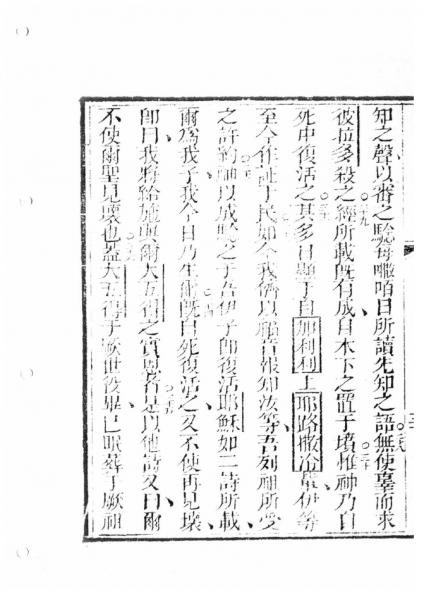 知之聲以審之驗每嚈咟日所讀先知之語無使辜而求
彼拉多殺之經所載既有成自木下之置于墳惟神乃自
死中復活之其多日顯于自加利利上耶路撒冷厥伊等
至今作証于民如今我儕以福音報知汝等吾列祖所受
之許約神以成驗之于吾伊子即復活耶穌如二詩所載
爾為我子我今日乃生爾既自死復活之又不使再見壞
即曰我將給施與爾大五得之實恩者是以他詩又曰爾
不使爾聖見壞也蓋大五得于厥世役畢已眠葬于厥祖